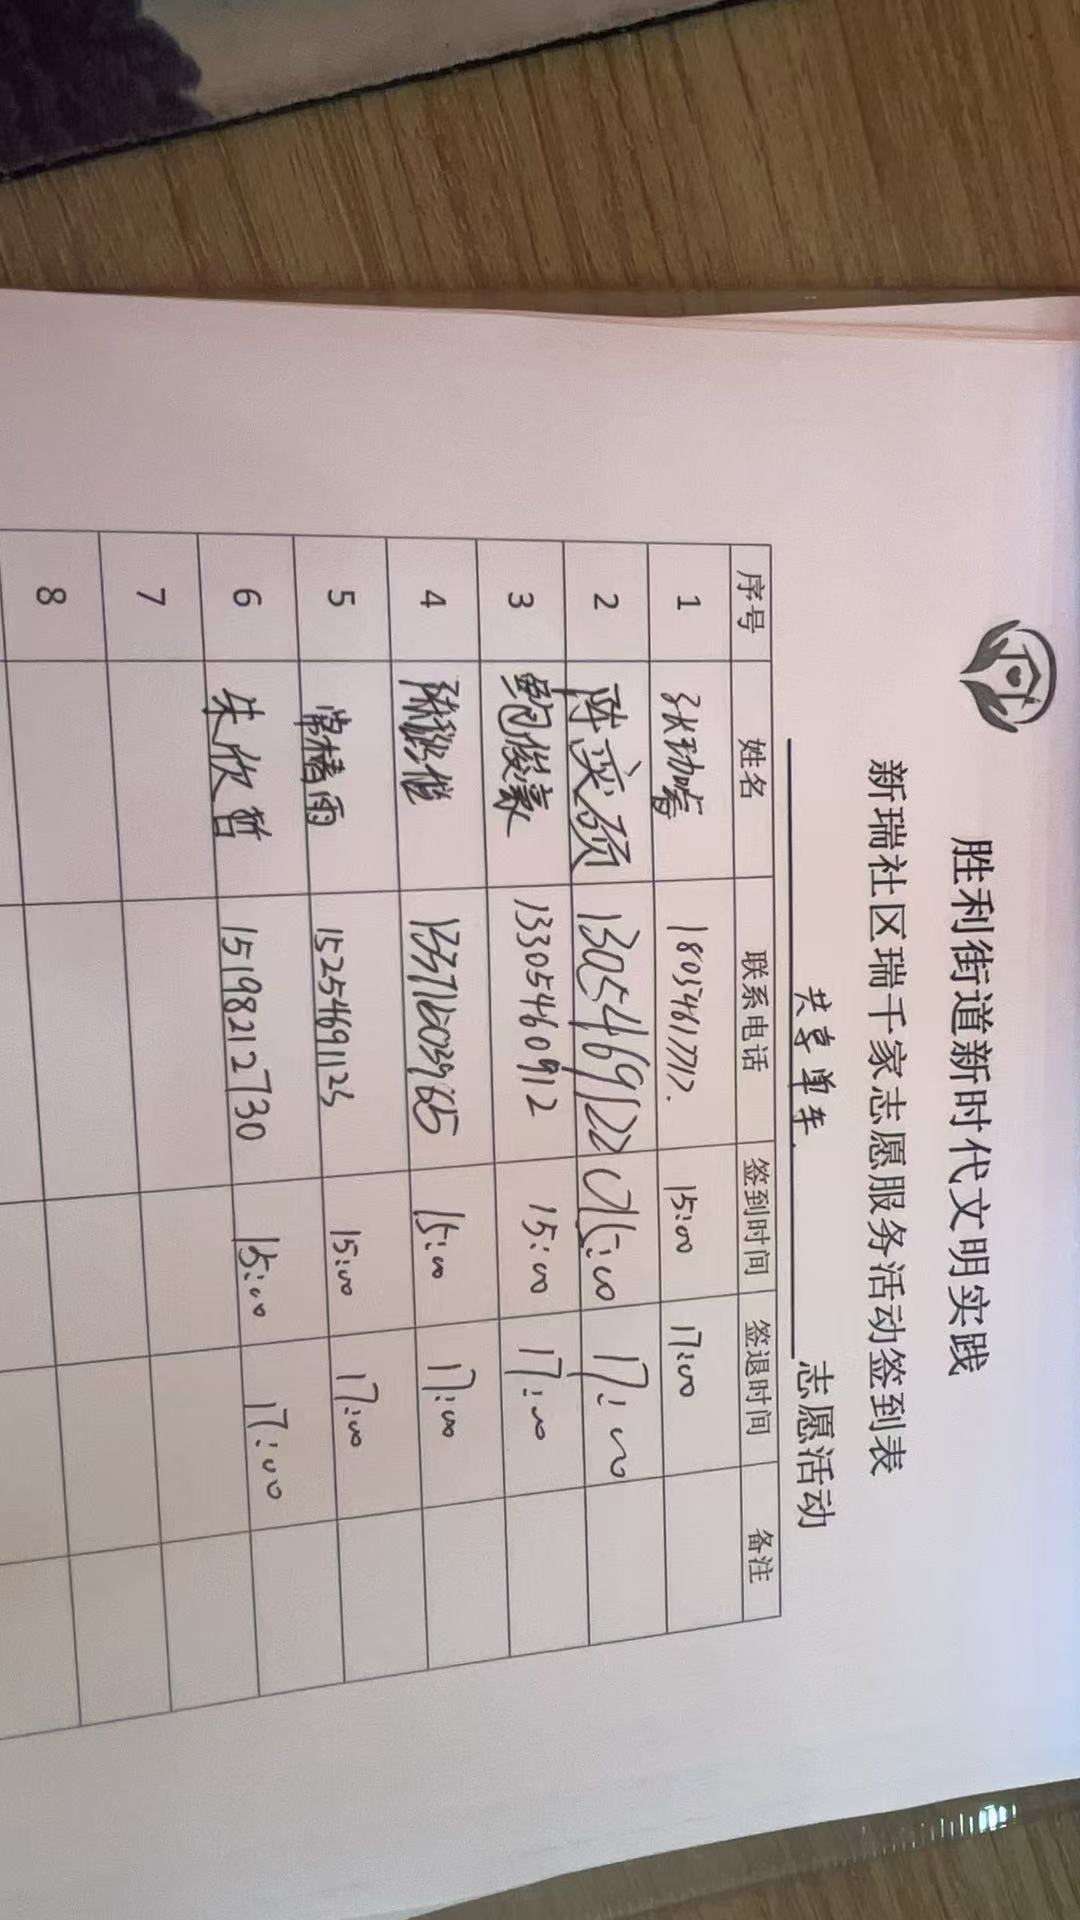 胜利街道新时代文明实践
新瑞社区瑞千家志愿服务活动签到表
共享单车 志愿活动
序号 姓名 联系电话 签到时间 签退时间 备注
1 15:00 17:00
2 陈奕硕 15:00 17:00
3 鲍俊豪 13305460912 15:00 17:00
4 15:00 17:00
5 常椿雨 15254691123 15:00 17:00
6 朱欣哲 15198212730 15:00 17:00
7
8